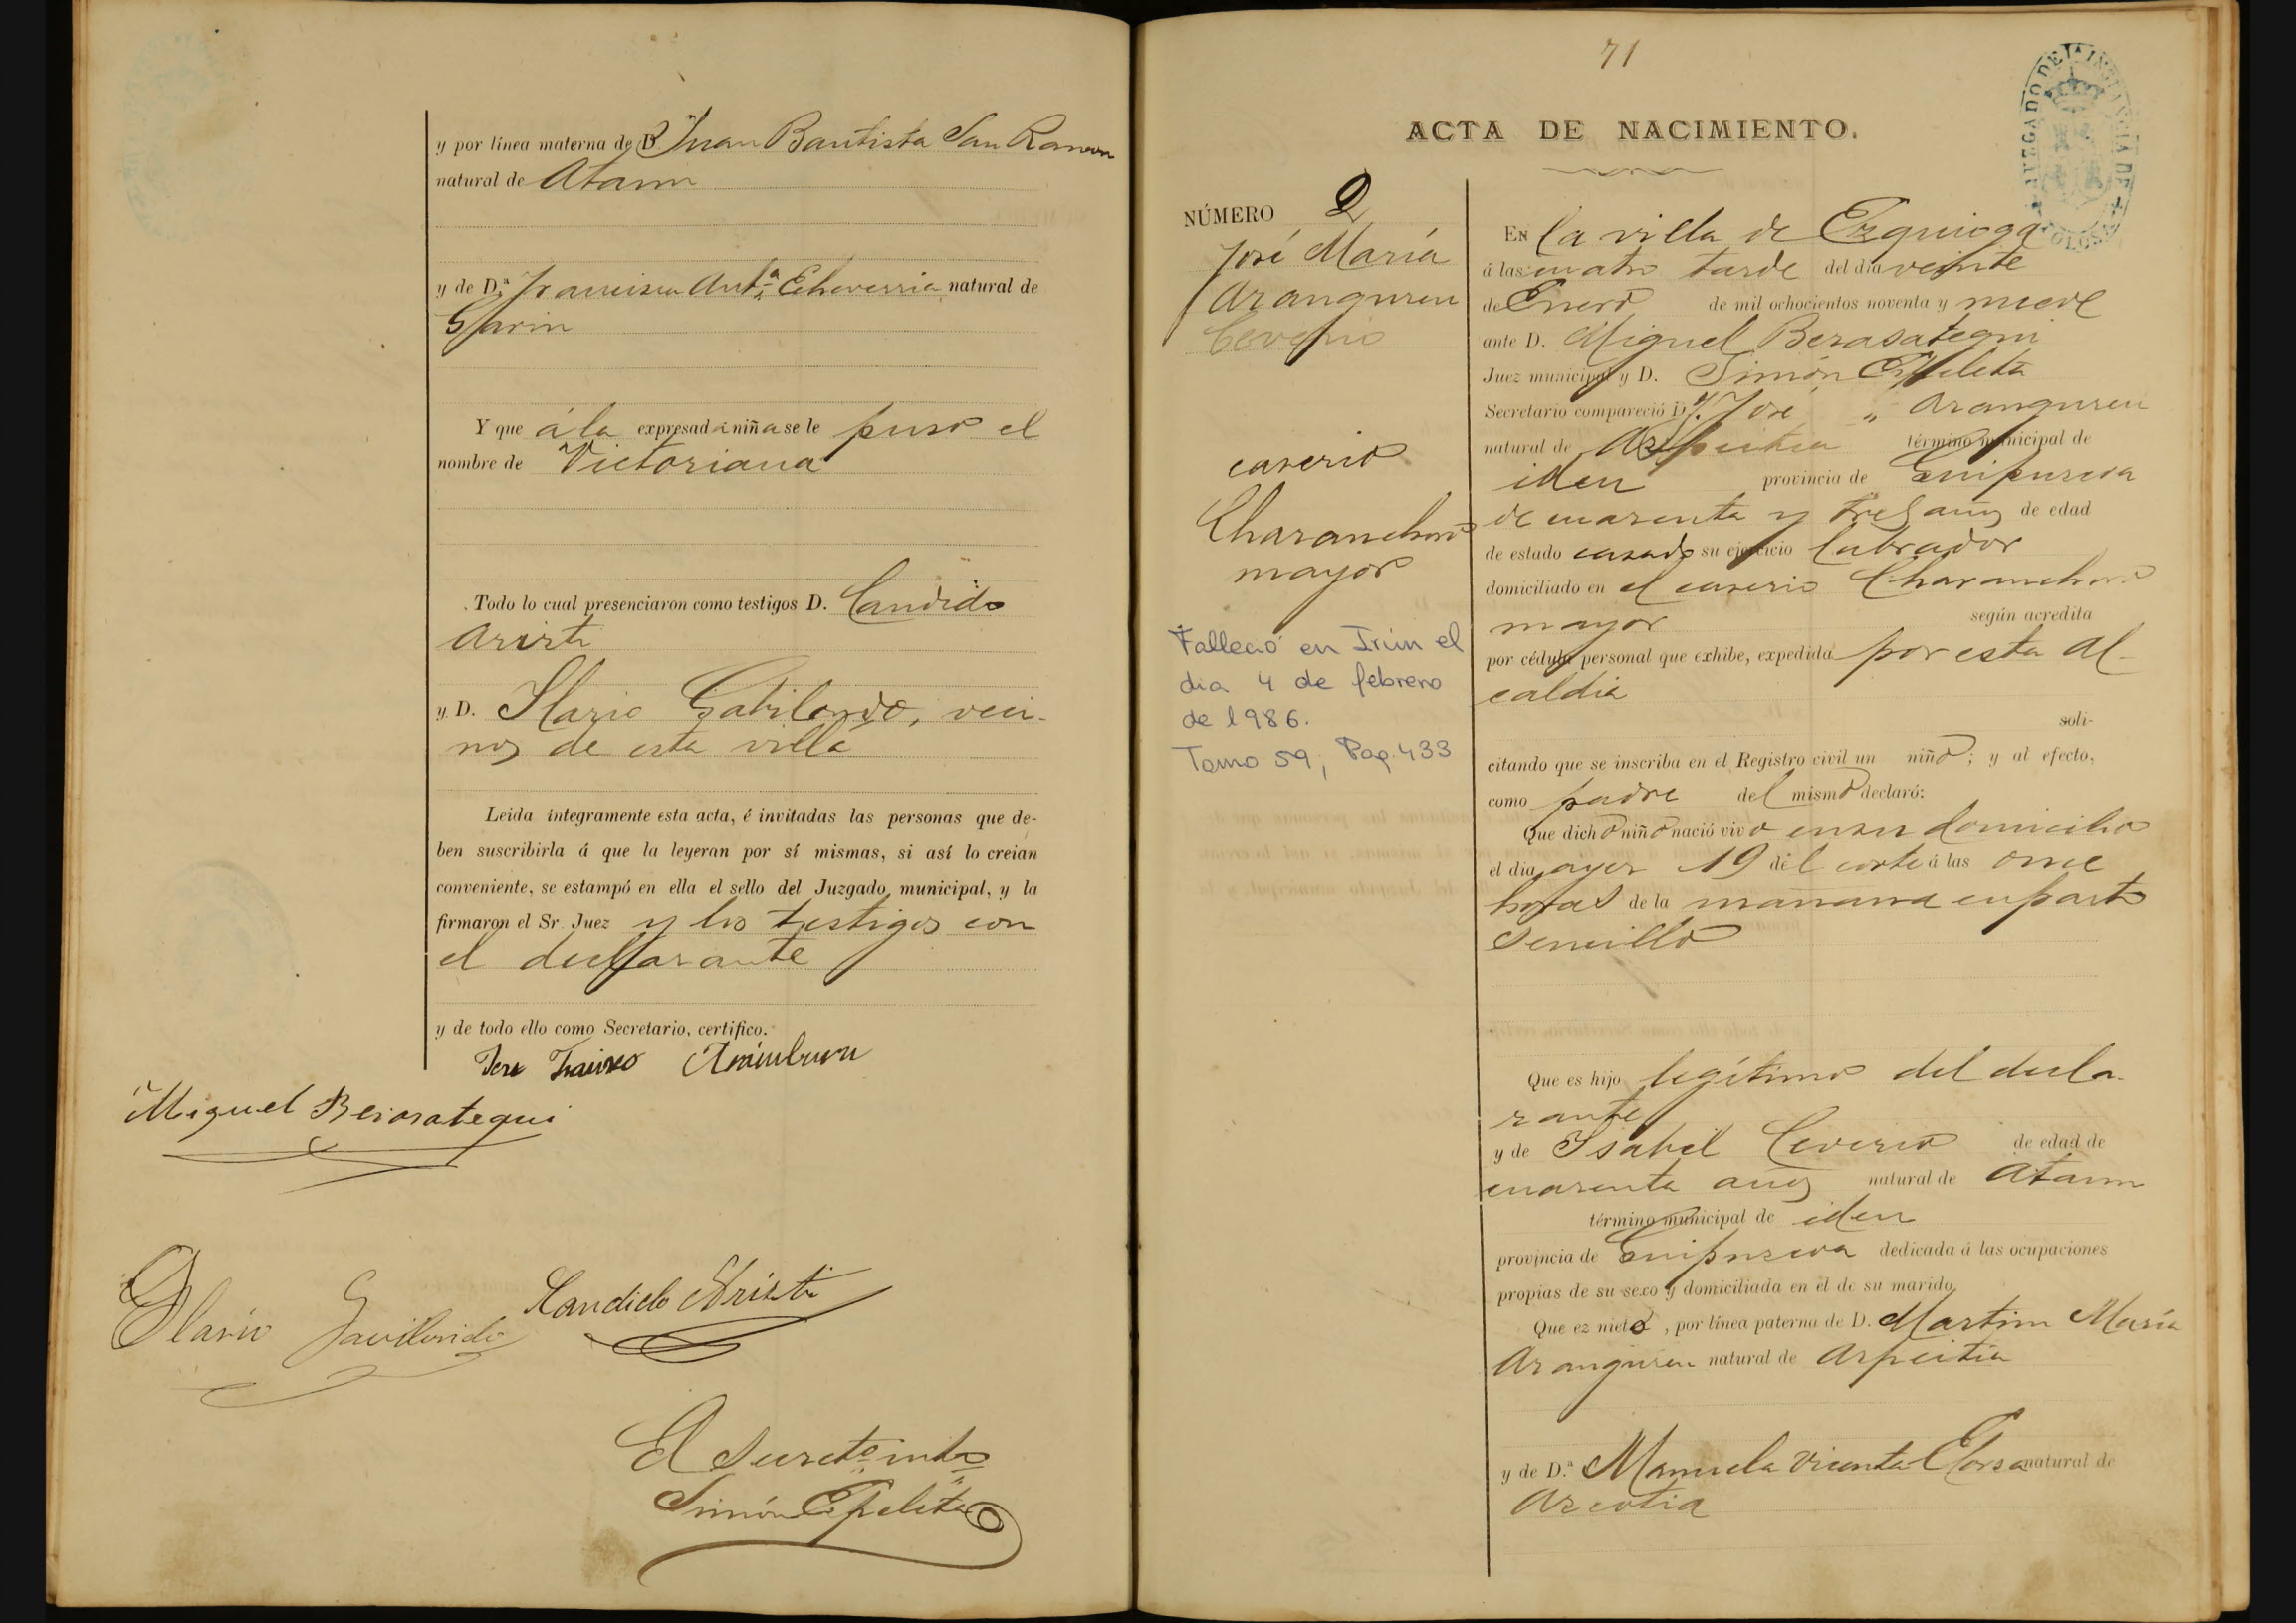 y por línea materna de D. Juan Bautista San Ramon
natural de Ataun
y de D.ª Francisca Ant.ª Echeverria natural de
Gavin
Y que á la expresada niña se le puso el
nombre de Victoriana
Todo lo cual presenciaron como testigos D. Candido
Aristi
y D. Ilario Gabilondo, veci-
nos de esta villa
Leida integramente esta acta, é invitadas las personas que de-
ben suscribirla á que la leyeran por sí mismas, si así lo creian
conveniente, se estampó en ella el sello del Juzgado municipal, y la
firmaron el Sr. Juez y los testigos con
el declarante
y de todo ello como Secretario, certifico.
Miguel Berasategui
Ilario Gavilondo
Candido Aristi
El Secret.º int.º
Simón Epelete
71
ACTA DE NACIMIENTO.
NÚMERO 2
José María
Aranguren
Ceverio
caserio
Charanchoro
mayor
Falleció en Irún el
dia 4 de febrero
de 1986.
Tomo 59, Pag. 433
EN la villa de Ezquioga
á las cuatro tarde del dia veinte
de Enero de mil ochocientos noventa y nueve
ante D. Miguel Berasategui
Juez municipal y D. Simón Epeleta
Secretario compareció D. José " Aranguren
natural de Azpeitia término municipal de
iden provincia de Guipuzcoa
de cuarenta y tres años de edad
de estado casado su ejercicio labrador
domiciliado en el caserio Charanchoro
mayor según acredita
por cédula personal que exhibe, expedida por esta Al-
caldia
soli-
citando que se inscriba en el Registro civil un niño; y al efecto,
como padre del mismo declaró:
Que dicho niño nació vivo en su domicilio
el dia ayer 19 del corte á las once
horas de la manana en parto
sencillo
Que es hijo legítimo del decla-
rante
y de Isabel Ceverio de edad de
cuarenta años natural de Ataun
término municipal de iden
provincia de Guipuzcoa dedicada á las ocupaciones
propias de su sexo y domiciliada en el de su marido
Que ez nieto, por línea paterna de D. Martin María
Aranguren natural de Azpeitia
y de D.ª Manuela Vicenta Elorza natural de
Azcoitia